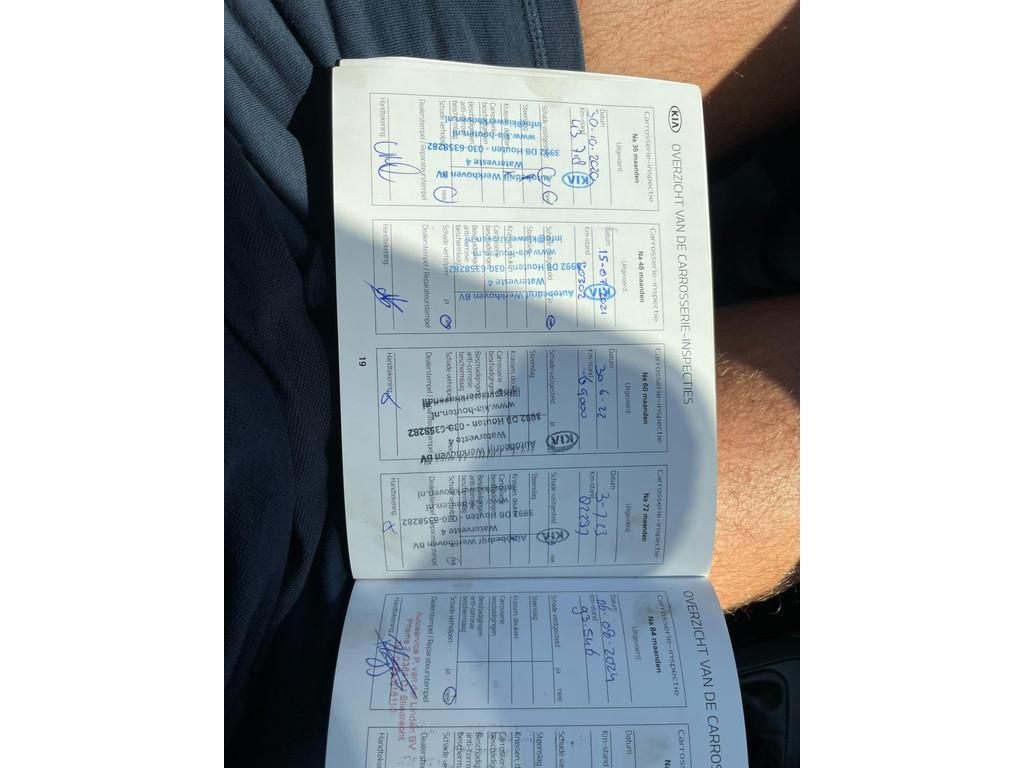 KIA OVERZICHT VAN DE CARROSSERIE-INSPECTIES
Carrosserie-inspectie
Na 36 maanden
Uitgevoerd
Datum
30-10-2020
Km-stand
Schade vastgesteld
nee
Steenslag
Krassen, deuken
Carrosserie
beschadigingen
Beschadigingen
anti-corrosie
beschermlaag
Schade verholpen
nee
Dealerstempel / Reparateurstempel
Handtekening
KIA
Autobedrijf Werkhoven BV
Waterveste 4
3992 DB Houten - 030-6358282
www.kia-houten.nl
info@kiawerkhoven.nl
Carrosserie-inspectie
Na 48 maanden
Uitgevoerd
Datum
15-07-2021
Km-stand
Schade vastgesteld
ja
Steenslag
Krassen, deuken
Carrosserie
beschadigingen
Beschadigingen
anti-corrosie
beschermlaag
Schade verholpen
ja
Dealerstempel / Reparateurstempel
Handtekening
KIA
Autobedrijf Werkhoven BV
Waterveste 4
3992 DB Houten - 030-6358282
www.kia-houten.nl
info@kiawerkhoven.nl
Carrosserie-inspectie
Na 60 maanden
Uitgevoerd
Datum
30-6-22
Km-stand
Schade vastgesteld
ja
Steenslag
Krassen, deuken
Carrosserie
beschadigingen
Beschadigingen
anti-corrosie
beschermlaag
Schade verholpen
Dealerstempel / Reparateurstempel
Handtekening
KIA
Autobedrijf Werkhoven BV
Waterveste 4
3992 DB Houten - 030-6358282
www.kia-houten.nl
19
Carrosserie-inspectie
Na 72 maanden
Uitgevoerd
Datum
3-7-23
Km-stand
Schade vastgesteld
nee
Steenslag
Krassen, deuken
Carrosserie
beschadigingen
Beschadigingen
anti-corrosie
beschermlaag
Schade verholpen
Dealerstempel / Reparateurstempel
Handtekening
KIA
Autobedrijf Werkhoven BV
Waterveste 4
3992 DB Houten - 030-6358282
www.kia-houten.nl
OVERZICHT VAN DE CARROS
Carrosserie-inspectie
Na 84 maanden
Uitgevoerd
Datum
06-08-2024
Km-stand
93.546
Schade vastgesteld
ja nee
Steenslag
Krassen, deuken
Carrosserie
beschadigingen
Beschadigingen
anti-corrosie
beschermlaag
Schade verholpen
ja nee
Dealerstempel / Reparateurstempel
Handtekening
Autoservice P. van der Linden BV
Sliedrecht
Carros
Datum
Km-stand
Schade vas
Steenslag
Krassen, de
Carrosserie
beschadig
Beschadig
anti-corro
bescherm
Schade v
Dealers
Handteke